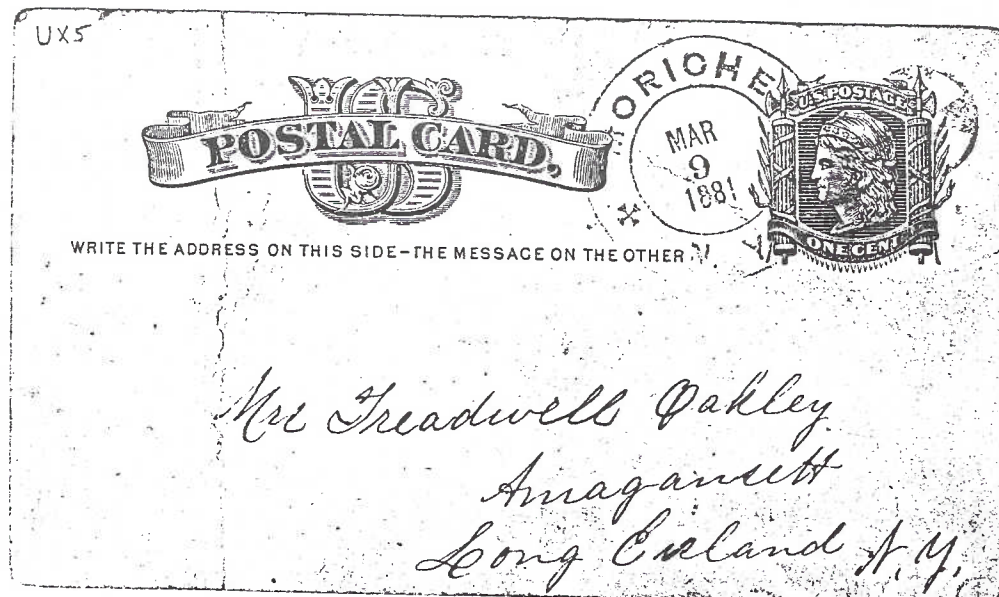 UX5
US
POSTAL CARD,
MORICHES
MAR
9
1881
N. Y.
U.S. POSTAGE
ONE CENT
WRITE THE ADDRESS ON THIS SIDE–THE MESSAGE ON THE OTHER
Treadwell Oakley
Amagansett
Long Eisland N.Y.